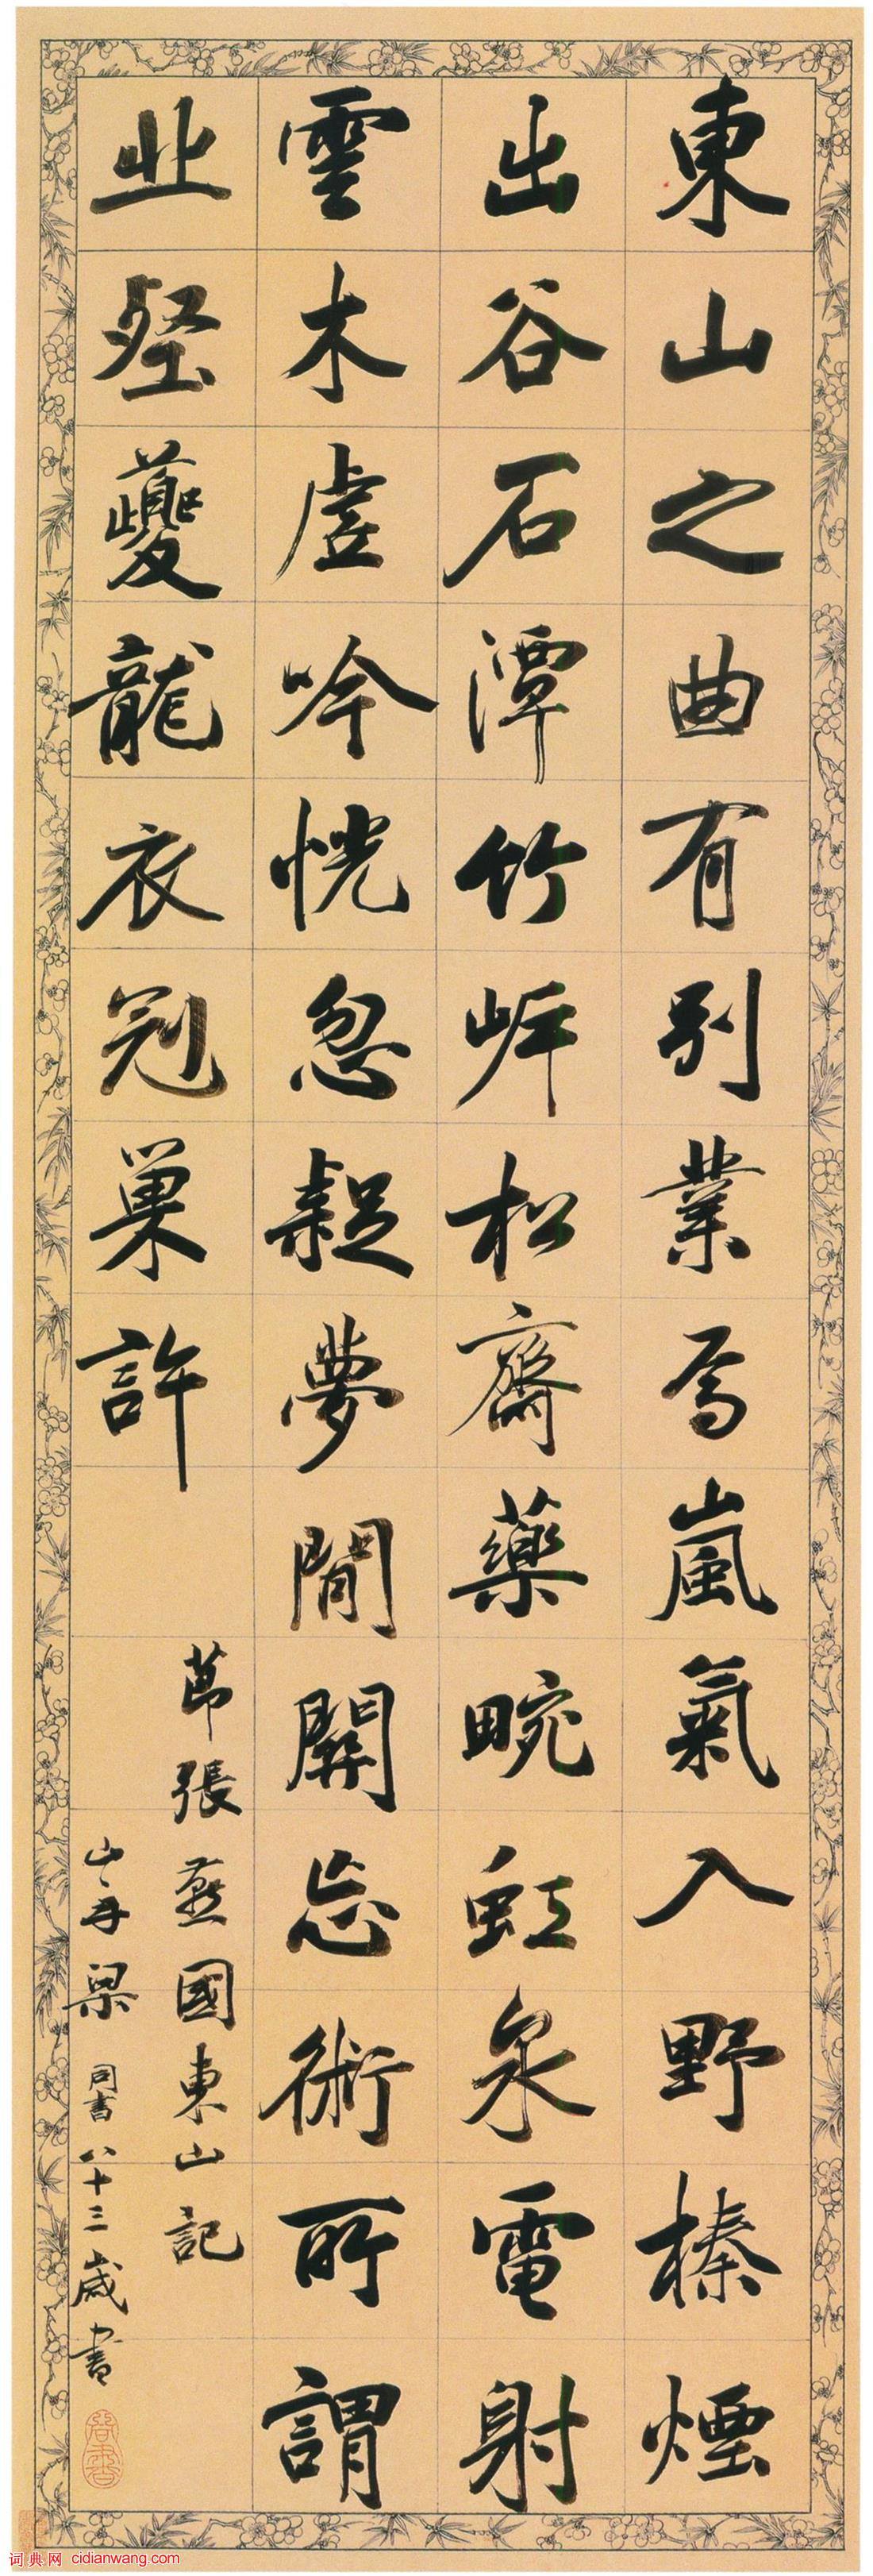 東山之曲有別業焉嵐氣入野榛煙
出谷石潭竹岸松齋藥畹虹泉電射
雲木虛吟恍忽疑夢閒關忘術所謂
丘壑夔龍衣冠巢許
節張燕國東山記
山舟梁同書八十三歲書
词典网 cidianwang.com